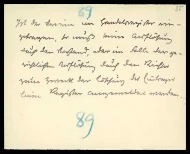 69
Ist der Verein im Handelsregister ein-
getragen, so muß seine Auflösung
auf den Vorstand, oder im Falle der ge-
richtlichen Auflösung durch den Richter
zum Zwecke der Löschung des Eintrags
beim Register angemeldet werden
89